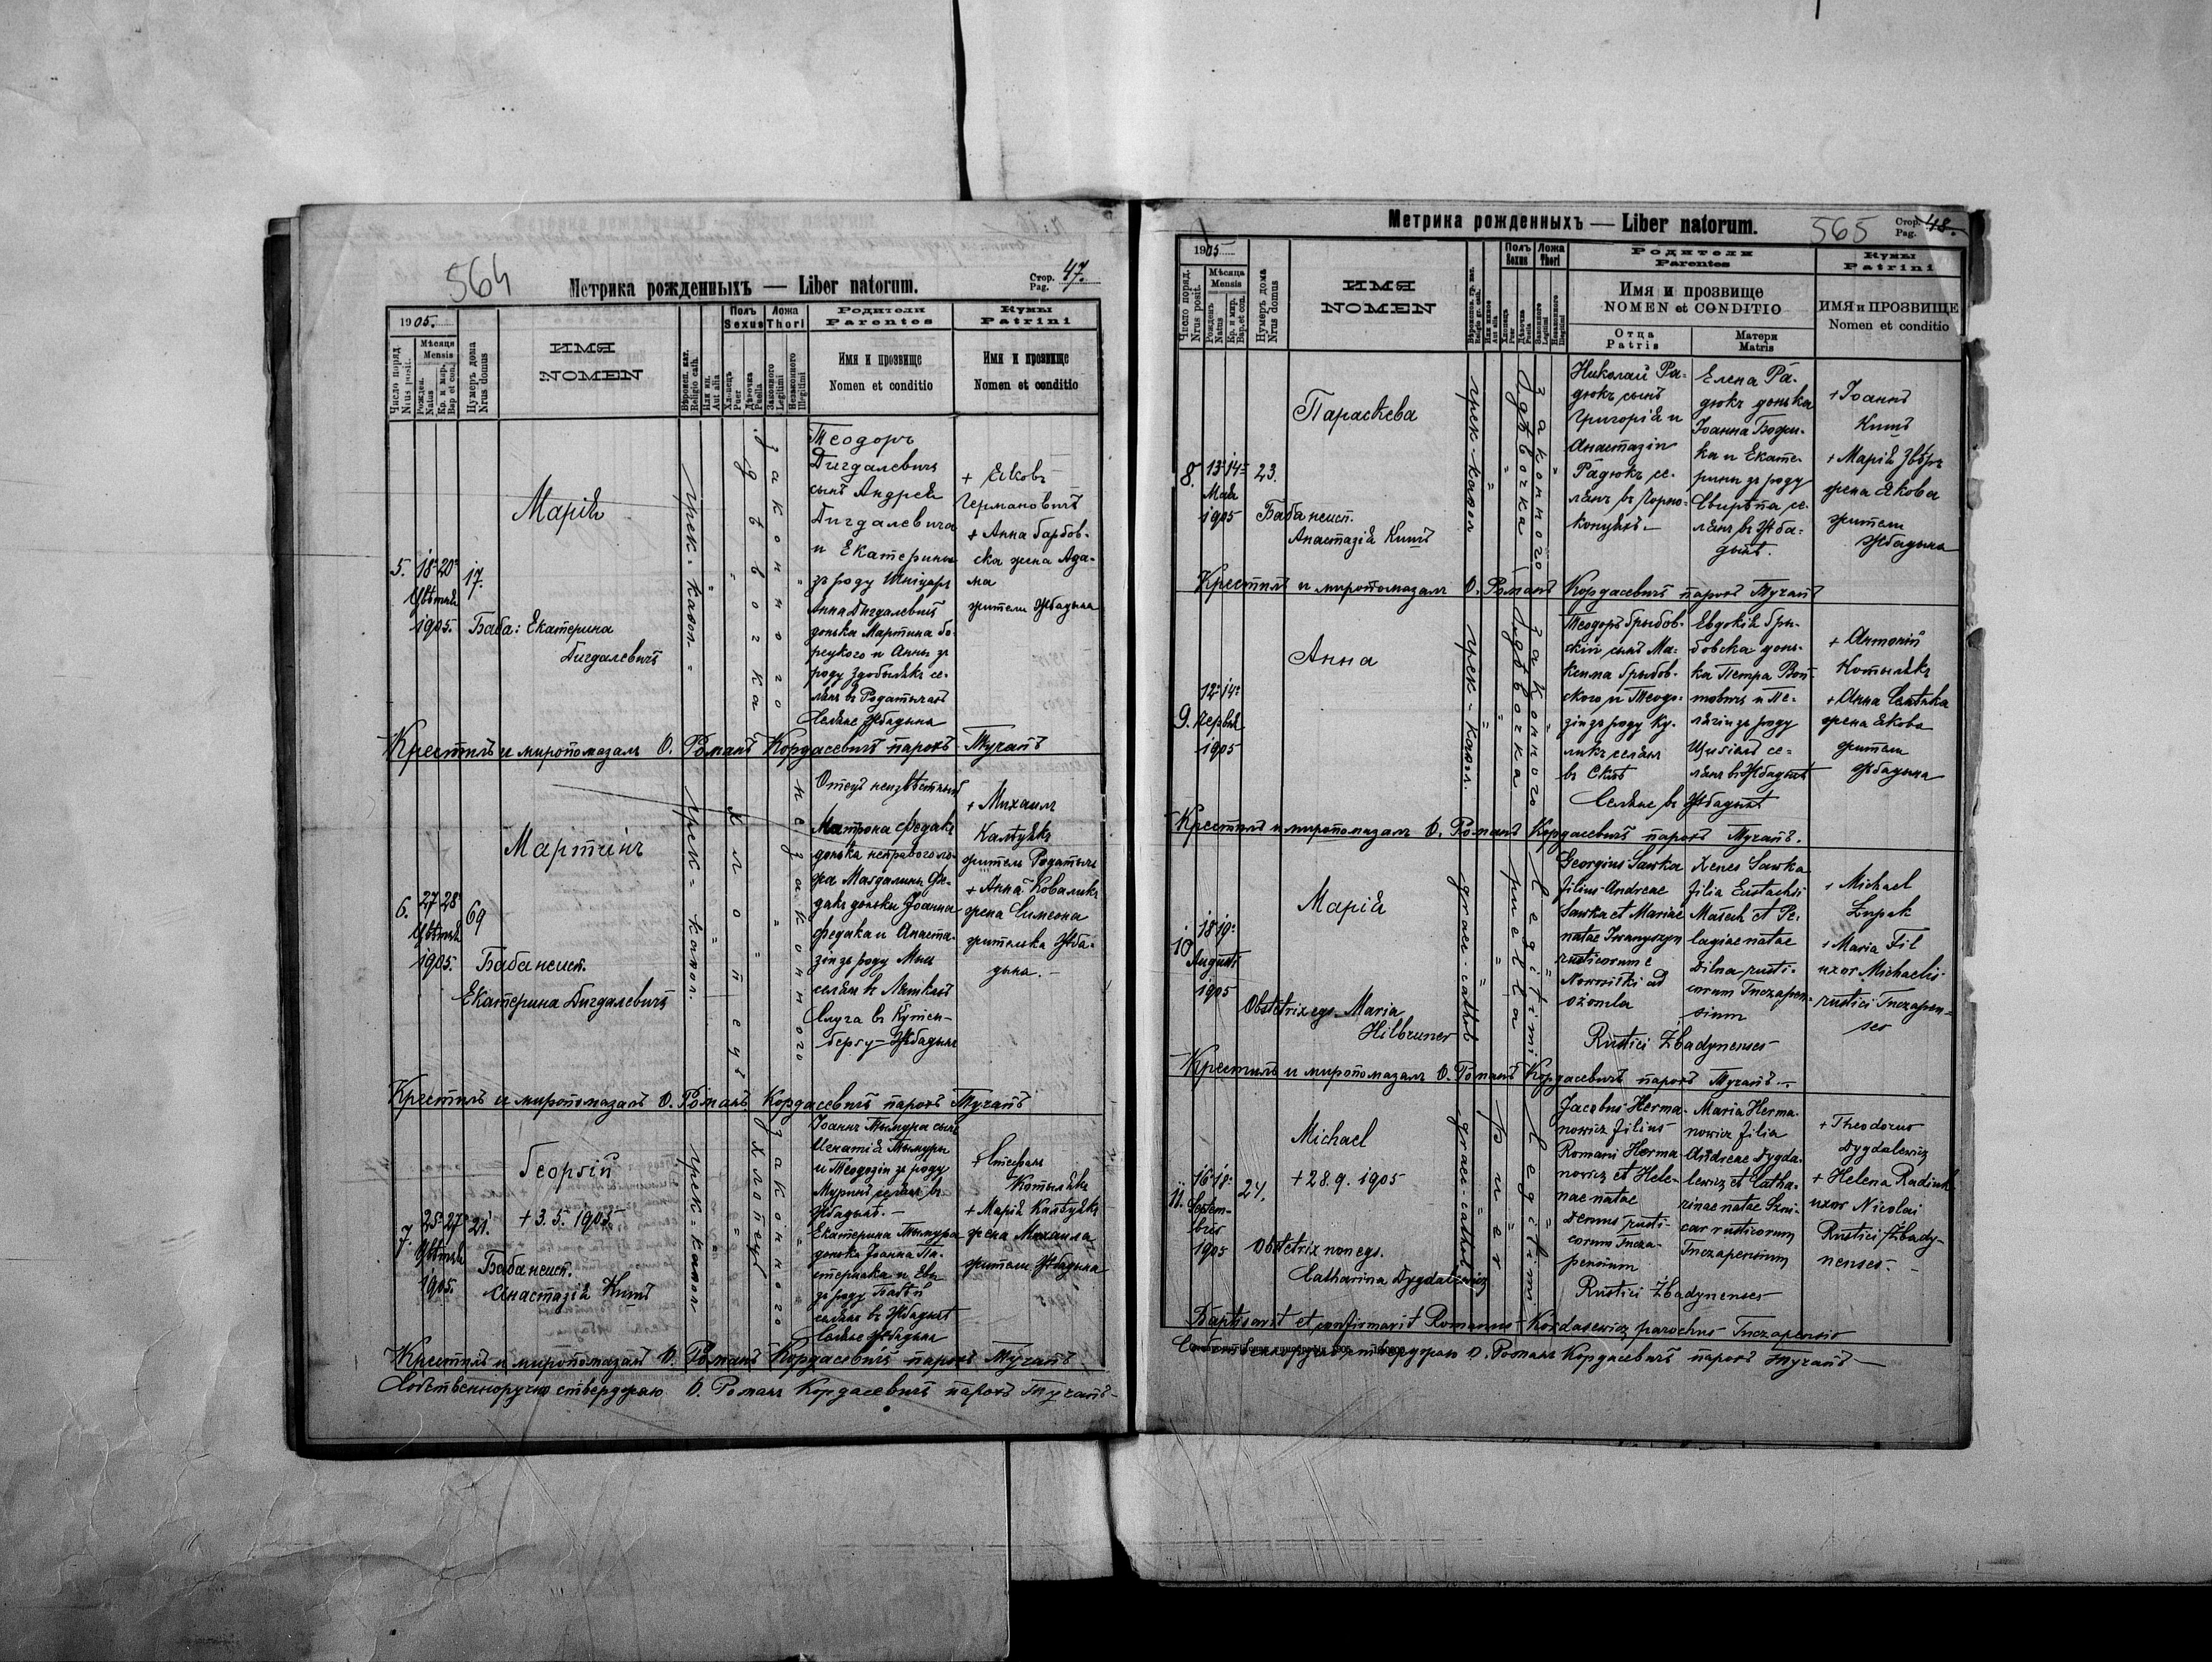 564
Метрика рожденныхъ — Liber natorum.
Стор. Pag. 47.
1905.
Число поряд. Nrus posit.
Мѣсяца Mensis
Рожден. Natus
Кр. и мир. Bap et con.
Нумеръ дома Nrus domus
ИМЯ
NOMEN
Полъ
Sexus
Хлопецъ Puer
Дѣвочка Puella
Ложа
Thori
Законного Legitimi
Незаконного Illegitimi
Родители
Parentes
Имя и прозвище
Nomen et conditio
Кумы
Patrini
Имя и прозвище
Nomen et conditio
5.
18 20
1905.
17.
Марія
Баба: Екатерина
Дигдалевичъ
грек. катол.
дѣвочка
законного
Теодоръ
Дигдалевичъ
сынъ Андрея
Дигдалевича
и Екатерины
зъ роду Шніцаръ
Анна Дигдалевичъ
донька Мартина Бо-
рецкого и Анны зъ
роду Здобылякъ се-
лянъ въ Родатычахъ
Селяне Жбадына
+ Яковъ
Германовичъ
+ Анна Барбов-
ска жена Ада-
ма
жители Жбадына
Крестилъ и миропомазалъ О. Романъ Кордасевичъ парохъ Тучапъ
6.
27 28
1905.
69
Мартинъ
Баба неисп.
Екатерина Дигдалевичъ
грек. катол.
хлопецъ
незаконного
Отецъ неизвѣстный
Матрона Федакъ
донька неправого ло-
жа Магдалины Фе-
дакъ доньки Іоанна
Федака и Анаста-
зіи зъ роду Мыць
селянъ въ
Слуга въ
бергу — Жбадынъ
+ Михаилъ
Калѣтуякъ
житель Родатычъ
+ Анна Коваликъ
жена Симеона
жителька Жба-
дына.
Крестилъ и миропомазалъ О. Романъ Кордасевичъ парохъ Тучапъ
7.
25 27
1905.
21.
Георгій
+ 3. 5. 1905
Баба неисп.
Анастазія Кишъ
грек. катол
хлопецъ
законного
Іоаннъ Тымура сынъ
Игнатія Тымуры
и Теодозіи зъ роду
Муринъ селянъ въ
Жбадынѣ. —
Екатерина Тымура
донька Іоанна Па-
стернака и Евы
зъ роду Бабѣй
селянъ въ Жбадынѣ
Селяне Жбадына
+ Стефанъ
Котылякъ
+ Марія Калѣтуякъ
жена Михаила
жители Жбадына
Крестилъ и миропомазалъ О. Романъ Кордасевичъ парохъ Тучапъ
Собственноручно стверджаю О. Романъ Кордасевичъ парохъ Тучапъ —
Метрика рожденныхъ — Liber natorum.
565
Стор. Pag. 48.
1905
Число поряд. Nrus posit.
Мѣсяца Mensis
Рожденъ Natus
Кр. и мир. Bap. et con.
Нумеръ дома Nrus domus
ИМЯ
NOMEN
Полъ Sexus
Ложа Thori
Родители
Parentes
Имя и прозвище
NOMEN et CONDITIO
Отца
Patris
Матери
Matris
Кумы
Patrini
ИМЯ и ПРОЗВИЩЕ
Nomen et conditio
8.
13 14
Мая
1905
23.
Параскева
Баба неисп.
Анастазія Кишъ
грек. катол
дѣвочка
законного
Николай Ра-
дюкъ сынъ
Григорія и
Анастазіи
Радюкъ се-
лянъ въ Чорно-
концяхъ. —
Елена Ра-
дюкъ донька
Іоанна Бофи-
ка и Екате-
рины зъ роду
Свирѣпа се-
лянъ въ Жба-
дынѣ.
+ Іоаннъ
Кишъ
+ Марія Звѣръ
жена Якова
жители
Жбадына
Крестилъ и миропомазалъ О. Романъ Кордасевичъ парохъ Тучапъ
9.
12 14
Червня
1905
Анна
грек. катол.
дѣвочка
законного
Теодоръ Грыбов-
скій сынъ Ма-
ксима Грыбов-
ского и Теодо-
зіи зъ роду Ку-
ликъ селянъ
Евдокія Гры-
бовска донь-
ка Петра Вой-
товичъ и Пе-
лягіи зъ роду
се-
лянъ въ Жбадынѣ
Селяне въ Жбадынѣ
+ Антоній
Котылякъ
+ Анна
жена Якова
жители
Жбадына
Крестилъ и миропомазалъ О. Романъ Кордасевичъ парохъ Тучапъ.
10
18 19
Augusti
1905
Марія
Obstetrix egs. Maria
Hilbruner
graec. cathol
puella
Legitimi
Georgius Sawka
filius Andreae
Sawka et Mariae
natae Iwanyszyn
rusticorum e
Nowosilki ad
ożomla
Xenes Sawka
filia Eustachii
Masech et Pe-
lagiae natae
Dilna rusti-
corum Tuczapen-
sium
Rustici Żbadynenses
+ Michael
Zupak
+ Maria Fil
uxor Michaelis
rustici Tuczapen-
ses
Крестилъ и миропомазалъ О. Романъ Кордасевичъ парохъ Тучапъ. —
11.
16 18
Septem-
bris
1905
24.
Michael
+ 28. 9. 1905
Obstetrix non egs.
Catharina Dygdalewicz
graec. cathol
puer
Legitimi
Jacobus Herma-
nowicz filius
Romani Herma-
nowicz et Hele-
nae natae
Demus rusti-
corum Tucza-
pensium
Maria Herma-
nowicz filia
Andreae Dygda-
lewicz et Catha-
rinae natae Szni-
car rusticorum
Tuczapensium
Rustici Żbadynenses
+ Theodorus
Dygdalewicz
+ Helena Radiuk
uxor Nicolai
Rustici Żbady-
nenses. —
Baptisavit et confirmavit Romanus Kordasewicz parochus Tuczapensis
Собственноручно стверджаю О. Романъ Кордасевичъ парохъ Тучапъ —